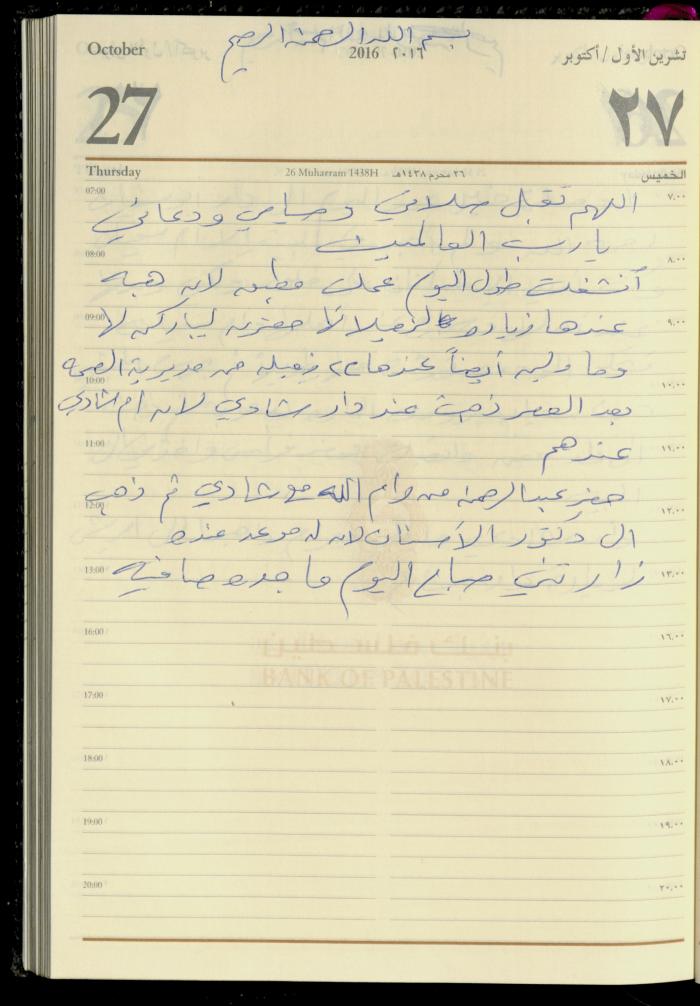 بسم الله الرحمن الرحيم
October 2016 ٢٠١٦ تشرين الأول / أكتوبر
27 ٢٧
Thursday 26 Muharram 1438H ٢٦ محرم ١٤٣٨هـ الخميس
07:00 ٧،٠٠
اللهم تقبل صلاتي وصيامي ودعائي
يا رب العالمين
08:00 ٨،٠٠
أنشغلت طول اليوم عملت لان هبه
09:00 ٩،٠٠
عندها زياره لزميلاتها حضرن ليباركن لها
وما ولين أيضاً عندها ٢٢ زميله من مديرية الصحه
10:00 ١٠،٠٠
بعد العصر ذهبت عند دار شادي لان ام شادي
11:00 ١١،٠٠
عندهم
حضر عبد الرحمن من رام الله مع شادي ثم ذهب
12:00 ١٢،٠٠
ال دكتور الأسنان لان له موعد عنده
13:00 ١٣،٠٠
زارتني صباح اليوم ماجده صافيه
16:00 ١٦،٠٠
بنك فلسطين
BANK OF PALESTINE
17:00 ١٧،٠٠
18:00 ١٨،٠٠
19:00 ١٩،٠٠
20:00 ٢٠،٠٠